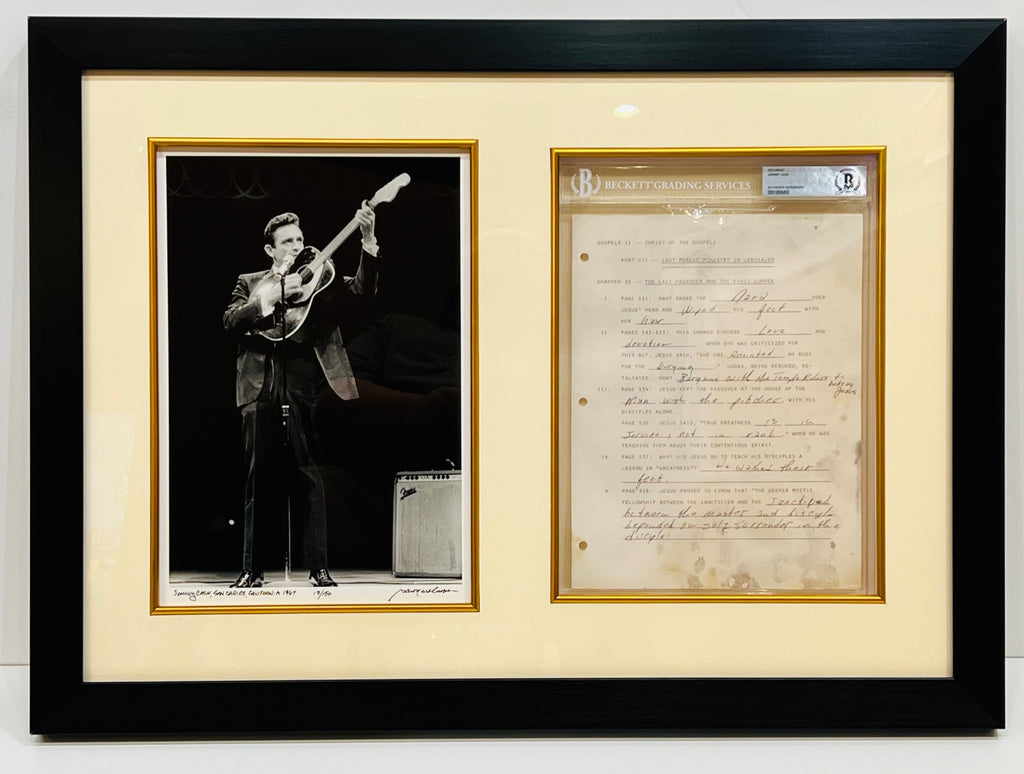 JOHNNY CASH, SAN CARLOS, CALIFORNIA 1967 19/150
BECKETT GRADING SERVICES
DOCUMENT
JOHNNY CASH
AUTHENTIC AUTOGRAPH
BECKETT
B
GOSPELS II -- CHRIST OF THE GOSPELS
PART VII -- LAST PUBLIC MINISTRY IN JERUSALEM
CHAPTER 38 -- THE LAST PASSOVER AND THE FIRST SUPPER
I. PAGE 531: MARY BROKE THE Nard OVER
JESUS' HEAD AND Wiped HIS feet WITH
HER hair
II. PAGES 532-533: THIS SHOWED SINCERE Love AND
devotion WHEN SHE WAS CRITICIZED FOR
THIS ACT, JESUS SAID, "SHE HAS Anointed MY BODY
FOR THE burying." JUDAS, BEING REBUKED, RE-
TALIATED. HOW? Bargains with the Temple Rulers to
betray
Jesus
III. PAGE 534: JESUS KEPT THE PASSOVER AT THE HOUSE OF THE
Man with the pitcher WITH HIS
DISCIPLES ALONE.
PAGE 536: JESUS SAID, "TRUE GREATNESS is in
Service, not in rank," WHEN HE WAS
TEACHING THEM ABOUT THEIR CONTENTIOUS SPIRIT.
IV. PAGE 537: WHAT DID JESUS DO TO TEACH HIS DISCIPLES A
LESSON IN "GREATNESS"? He washed their
feet.
V. PAGE 538: JESUS PROVED TO SIMON THAT "THE DEEPER MYSTIC
FELLOWSHIP BETWEEN THE SANCTIFIER AND THE Sanctified
between the master and disciple
depended on self surrender in the
disciple